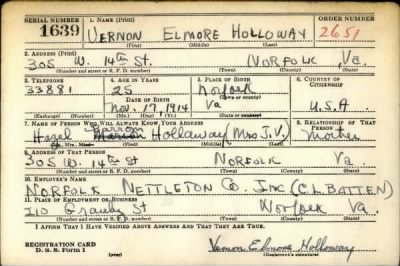 SERIAL NUMBER 1. NAME (Print) ORDER NUMBER
1639 VERNON ELMORE HOLLOWAY 2651
(First) (Middle) (Last)
2. ADDRESS (Print)
305 W. 14th St. NORFOLK Va.
(Number and street or R. F. D. number) (Town) (County) (State)
3. TELEPHONE 4. AGE IN YEARS 5. PLACE OF BIRTH 6. COUNTRY OF CITIZENSHIP
33881 25 Norfolk
DATE OF BIRTH (Town or county)
Nov. 17, 1914 Va U.S.A.
(Exchange) (Number) (Mo.) (Day) (Yr.) (State or country)
7. NAME OF PERSON WHO WILL ALWAYS KNOW YOUR ADDRESS 8. RELATIONSHIP OF THAT PERSON
Hazel Holloway (Mrs J.V.) Mother
(First) (Middle) (Last)
9. ADDRESS OF THAT PERSON
305 W. 14th St NORFOLK Va
(Number and street or R. F. D. number) (Town) (County) (State)
10. EMPLOYER'S NAME
NORFOLK NETTLETON CO. INC (C.L. BATTEN)
11. PLACE OF EMPLOYMENT OR BUSINESS
210 Granby St Norfolk Va.
(Number and street or R. F. D. number) (Town) (County) (State)
I AFFIRM THAT I HAVE VERIFIED ABOVE ANSWERS AND THAT THEY ARE TRUE.
REGISTRATION CARD
D. S. S. Form 1 Vernon Elmore Holloway
(Registrant's signature)